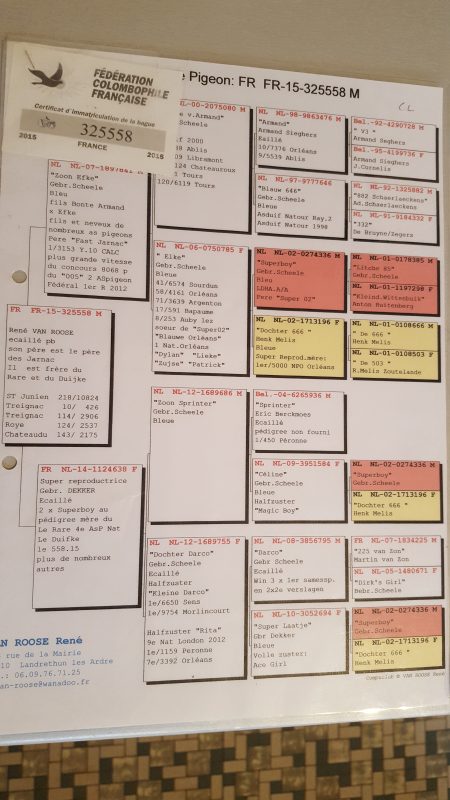 FÉDÉRATION
COLOMBOPHILE
FRANÇAISE
Certificat d'immatriculation de la bague
2015
325558
FRANCE
2015
Pigeon: FR FR-15-325558 M
CL
NL NL-07-1897841 M
"Zoon Efke"
Gebr.Scheele
Bleu
fils Bonte Armand
x Efke
fils et neveux de
nombreux as pigeons
Pere "Fast Jarnac"
1/3153 Y.10 CALC
plus grande vitesse
du concours 8068 p
du "005" 2 ASpigeon
Fédéral 1er R 2012
FR FR-15-325558 M
René VAN ROOSE
ecaillé pb
son père est le père
des Jarnac
Il est frère du
Rare et du Duijke
ST Junien 218/10824
Treignac 10/ 426
Treignac 114/ 2906
Roye 124/ 2537
Chateaudu 143/ 2175
FR NL-14-1124638 F
Super reproductrice
Gebr. DEKKER
Ecaillé
2 x Superboy au
pédigree mère du
Le Rare 4e AsP Nat
Le Duifke
le 558.15
plus de nombreux
autres
VAN ROOSE René
rue de la Mairie
10 Landrethun les Ardre
.: 06.09.76.71.25
an-roose@wanadoo.fr
NL-00-2075080 M
v.Armand"
Scheele
2000
Libramont
124 Chateauroux
Tours
120/6119 Tours
NL NL-06-0750785 F
" Elke"
Gebr.Scheele
Bleu
41/6574 Sourdun
58/4161 Orléans
71/3639 Argenton
17/591 Bapaume
8/253 Auby 1ez
soeur de "Super02"
"Blauwe Orléans"
1 Nat.Orléans
"Dylan" "Lieke"
"Zujse" "Patrick"
NL NL-12-1689686 M
"Zoon Sprinter"
Gebr.Scheele
Bleue
NL NL-12-1689755 F
"Dochter Darco"
Gebr.Scheele
Ecaillé
Halfzuster
"Kleine Darco"
1e/6650 Sens
1e/9754 Morlincourt
Halfzuster "Rita"
9e Nat London 2012
1e/1159 Peronne
7e/3392 Orléans
NL NL-98-9863476 M
"Armand"
Armand Sieghers
Kaillé
10/7376 Orléans
9/5539 Ablis
NL NL-97-9777646
"Blauw 646"
Gebr.Scheele
Bleue
Asduif Natour Hay.2
Asduif Natour 1998
NL NL-02-0274336 M
"Superboy"
Gebr.Scheele
Bleu
LDHA.A/A
Pere "Super 02"
NL NL-02-1713196 F
"Dochter 666 "
Henk Melis
Bleue
Super Reprod.mère:
1er/5000 NPO Orléans
Bel.-04-6265936 M
"Sprinter"
Eric Berckmoes
Ecaillé
pédigree non fourni
1/450 Péronne
NL NL-09-3951584 F
"Céline"
Gebr.Scheele
Bleue
Halfzuster
"Magic Boy"
NL NL-08-3856795 M
"Darco"
Gebr.Scheele
Ecaillé
Win 3 x 1er samessp.
en 2x2e verslagen
NL NL-10-3052694 F
"Super Laatje"
Gbr Dekker
Bleue
Volle zuster:
Ace Girl
Bel.-92-4290728 M
" V3 "
Armand Seghers
Bel.-95-4199736 F
Armand Sieghers
J.Cornelis
NL NL-92-1325882 M
"882 Schaerlaeckens"
Ad.Schaerlaeckens
NL NL-91-9184332 F
"332"
De Bruyne/Zegers
NL NL-01-0178385 M
"Litche 85"
Gebr.Scheele
NL NL-01-1197298 F
"Kleind.Wittenbuik"
Anton Ruitenberg
NL NL-01-0108666 M
" De 666 "
Henk Melis
NL NL-01-0108503 F
" De 503 "
R.Melis Zoutelande
NL NL-02-0274336 M
"Superboy"
Gebr.Scheele
NL NL-02-1713196 F
"Dochter 666 "
Henk Melis
FR NL-07-1834225 M
"225 van Zon"
Martin van Zon
NL NL-05-1480671 F
"Dirk's Girl"
Bebr.Scheele
NL NL-02-0274336 M
"Superboy"
Gebr.Scheele
NL NL-02-1713196 F
"Dochter 666 "
Henk Melis
Compuclub © VAN ROOSE René